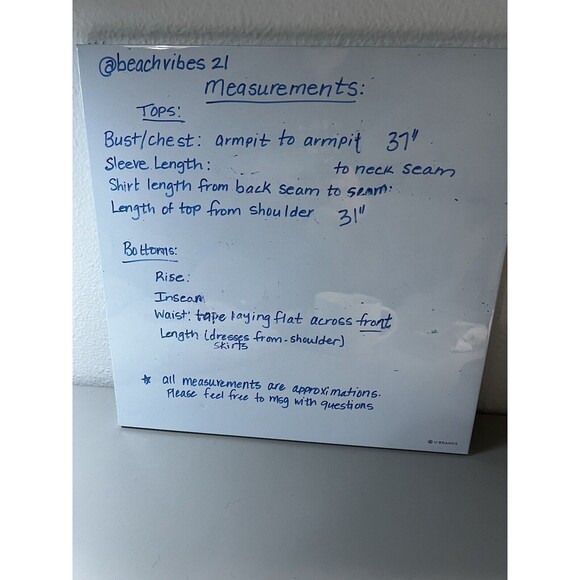 @beachvibes 21
Measurements:
TOPS:
Bust/chest: armpit to armpit 37"
Sleeve Length: to neck seam
Shirt length from back seam to seam:
Length of top from shoulder 31"
Bottoms:
Rise:
Inseam
Waist: tape laying flat across front
Length (dresses from-shoulder)
skirts
* all measurements are approximations.
Please feel free to msg with questions
U BRANDS